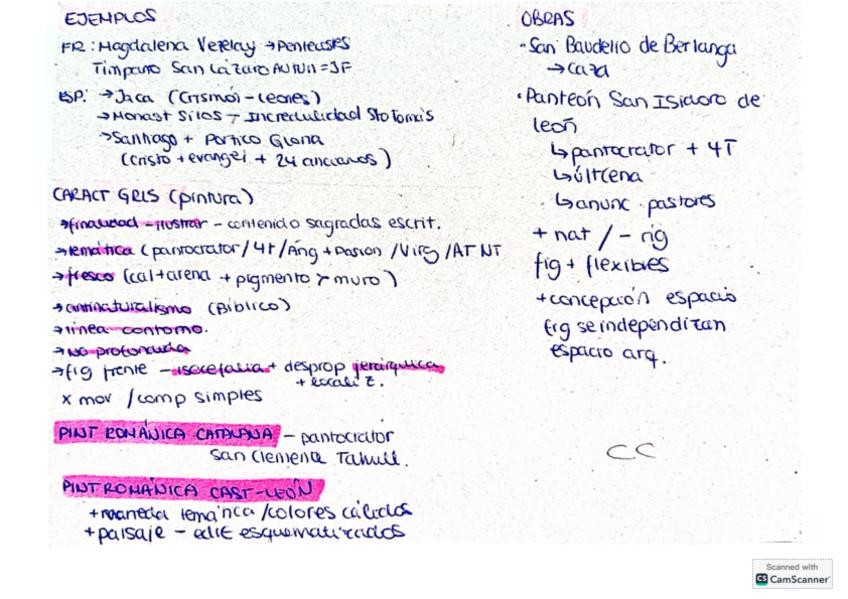 EJEMPLOS
FR: Magdalena Vezelay → Pentecostés
Tímpano San Lázaro AUTUN = JF
ESP: → Jaca (Crismón - leones)
→ Monast Silos - Incredulidad Sto Tomás
→ Santiago + Pórtico Gloria
(Cristo + evangel + 24 ancianos)
CARACT GRLS (pintura)
→ finalidad - ilustrar - contenido sagradas escrit.
→ temática (pantocrator / 4T / Áng + Pasion / Virg / AT NT
→ fresco (cal + arena + pigmento > muro)
→ antinaturalismo (Bíblico)
→ línea contorno.
→ No profundid
→ fig frente - isocefalia + desprop jerárquica
+ localiz.
x mov / comp simples
PINT ROMÁNICA CATALANA - pantocrator
San Clemena Tahull.
PINT ROMÁNICA CAST-LEÓN
+ temánca / colores cálidos
+ paisaje - edif esquematizados
OBRAS
· San Baudelio de Berlanga
→ caza
· Panteón San Isidoro de
león
↳ pantocrator + 4T
↳ últ cena
↳ anunc. pastores
+ nat / - rig
fig + flexibles
+ concepción espacio
fig se independizan
espacio arq.
CC
Scanned with
CS CamScanner